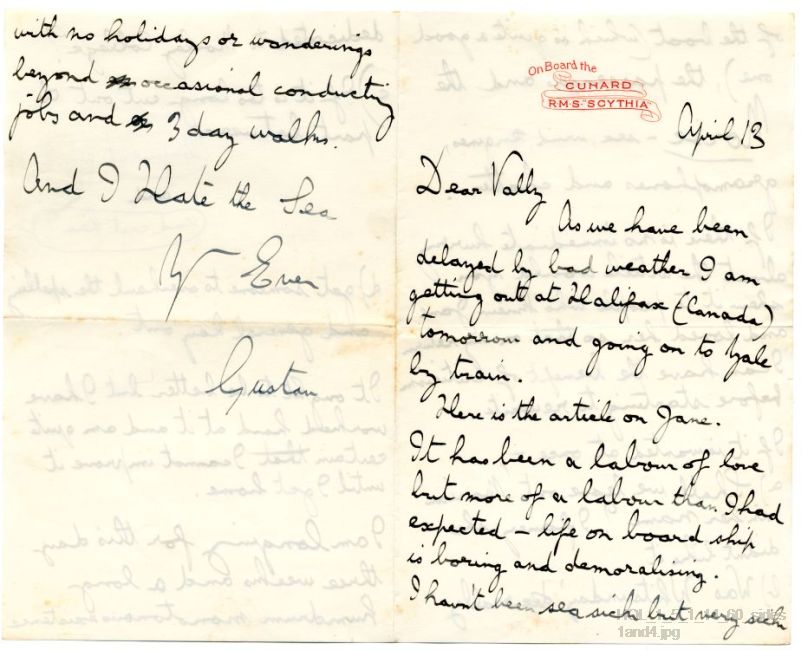 with no holidays or wonderings
beyond occasional conducting
jobs and 3 day walks.
And I Hate the Sea
Yr Ever
Gustav
On Board the
CUNARD
R.M.S. "SCYTHIA"
April 13
Dear Vally
As we have been
delayed by bad weather I am
getting out at Halifax (Canada)
tomorrow and going on to Yale
by train.
Here is the article on Jane.
It has been a labour of love
but more of a labour than I had
expected – life on board ship
is boring and demoralising.
I havn't been sea sick but very sick
1and4.jpg